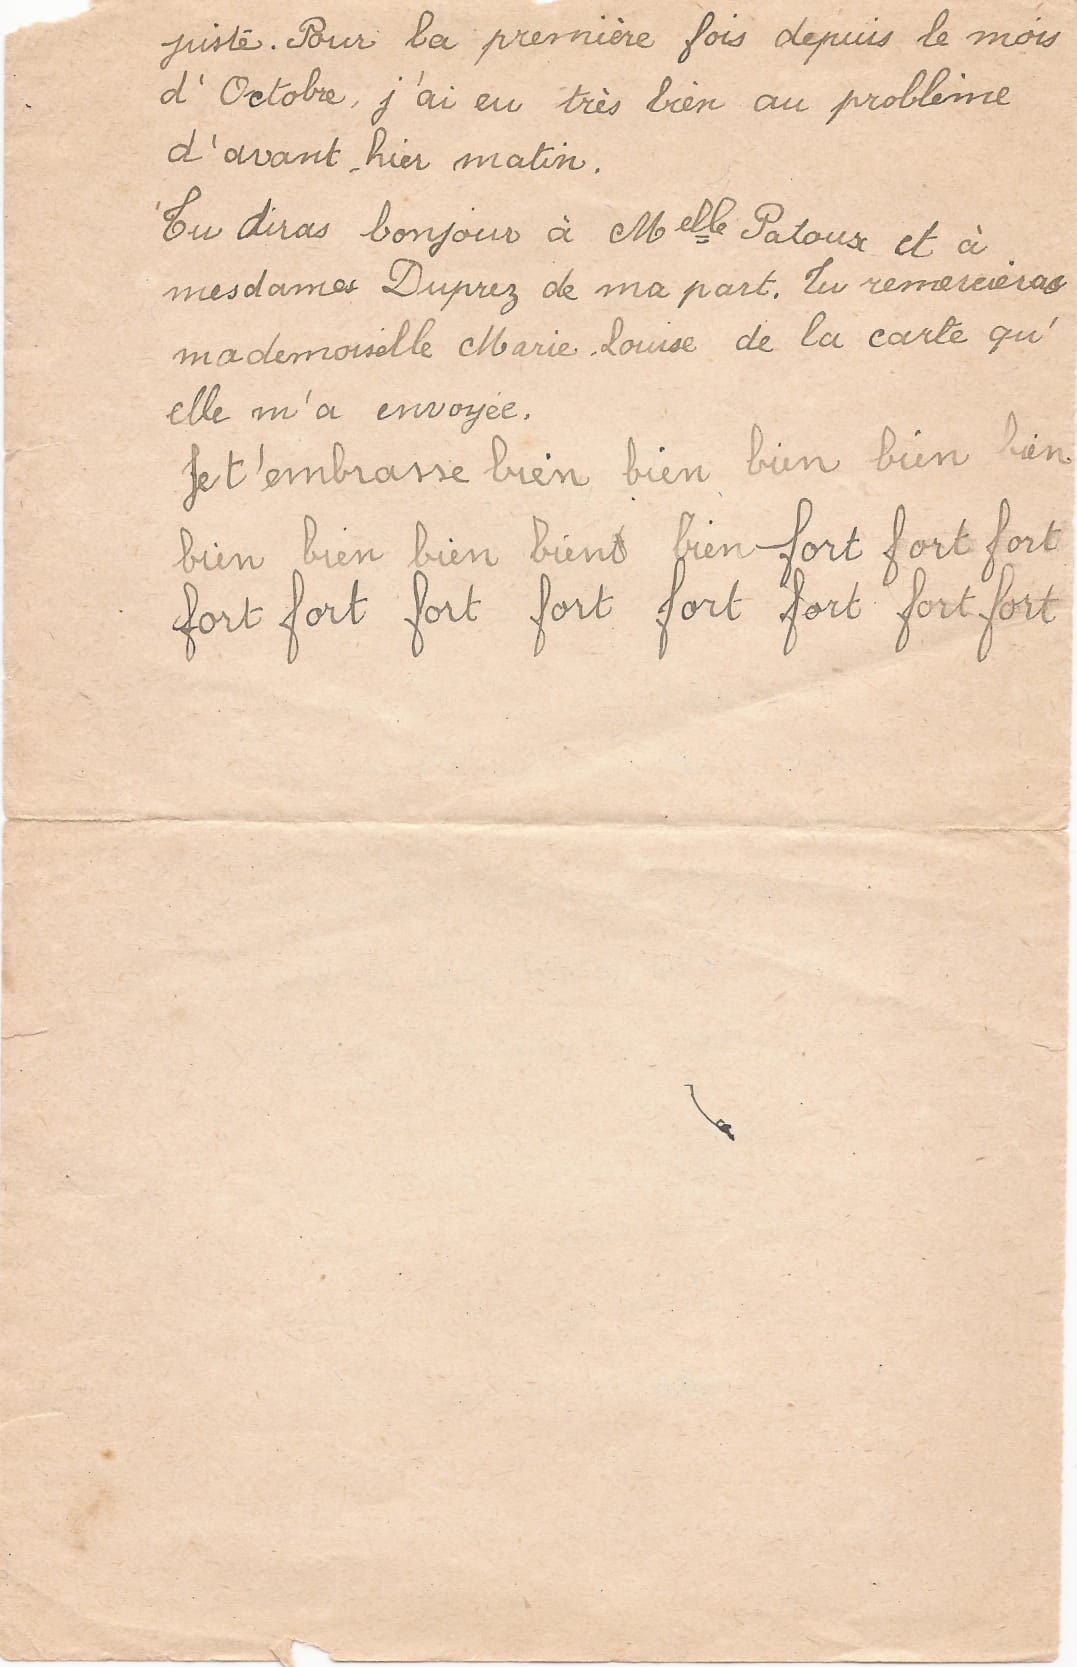 juste. Pour la première fois depuis le mois
d'Octobre, j'ai eu très bien au problème
d'avant-hier matin.
Tu diras bonjour à Melle Patoux et à
mesdames Duprez de ma part. Tu remercieras
mademoiselle Marie-Louise de la carte qu'
elle m'a envoyée.
Je t'embrasse bien bien bien bien bien
bien bien bien bien bien fort fort fort
fort fort fort fort fort fort fort fort